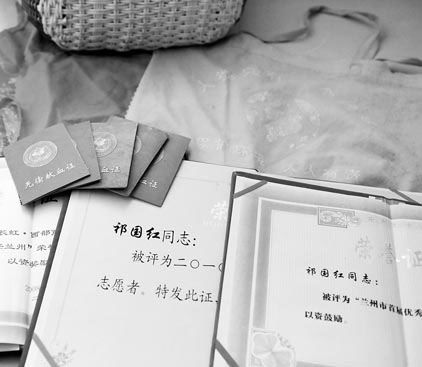 无偿献血证
血证
祁国红同志：
被评为二〇一〇
志愿者。特发此证
荣誉证
祁国红同志：
被评为“兰州市首届优秀
以资鼓励。
以资奖